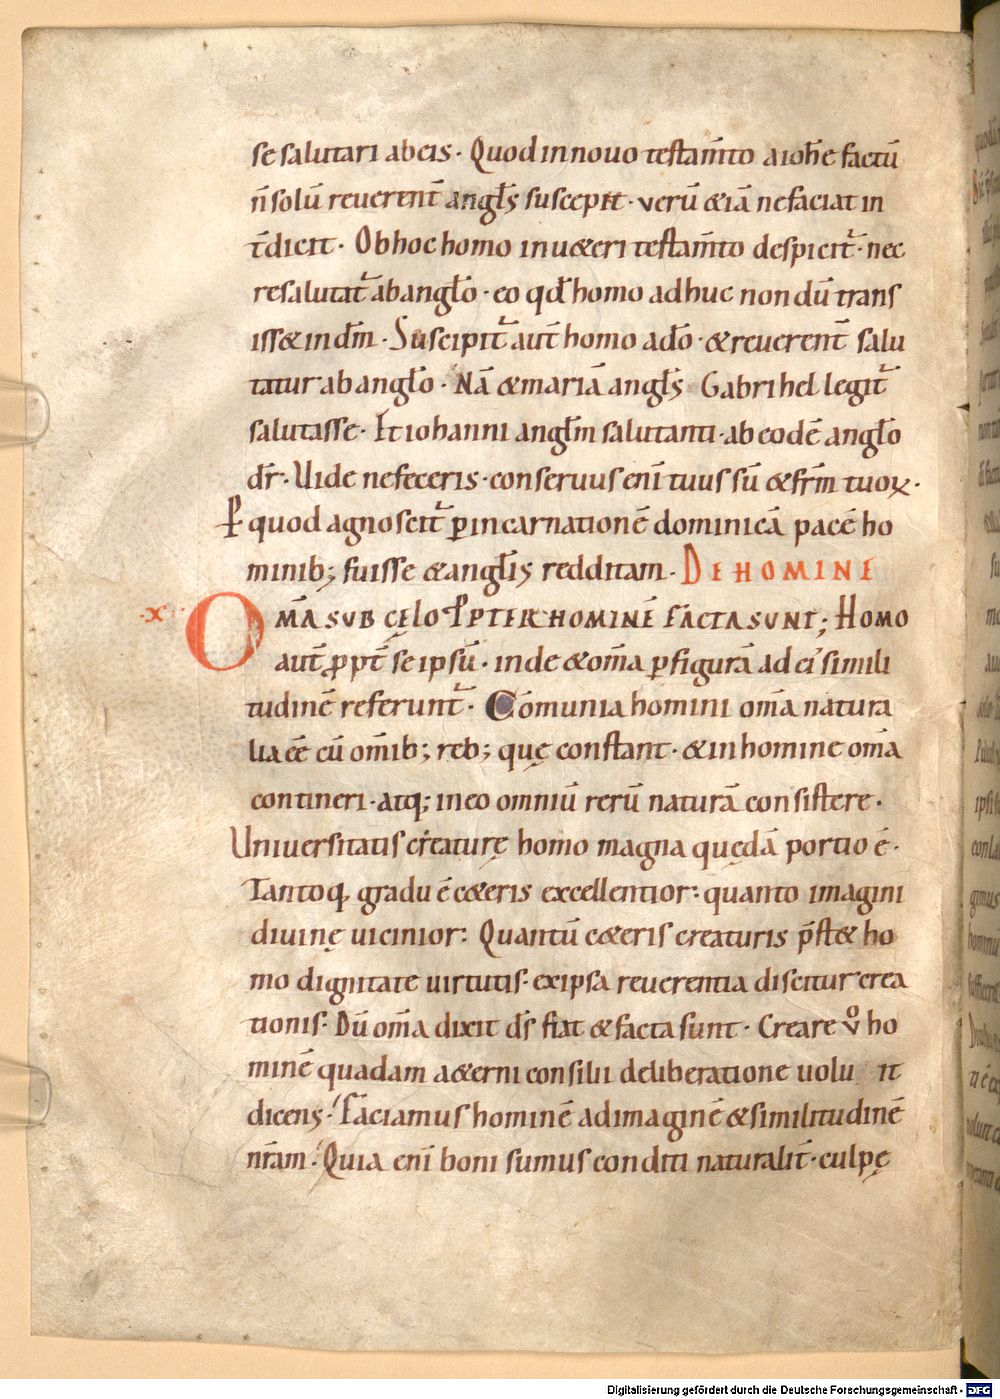 se salutari ab eis· Quod in nouo testam̄to a iohe factū
n̄ solū reuerent̄ angl̄s suscepit· verū &iā ne faciat in
t̄dicit· Ob hoc homo in u&eri testam̄to despicit᷑· nec
resalutat᷑ ab angl̄o· eo qd̄ homo adhuc nondū trans
iss& in dm̄· Suscipit᷑ aut̄ homo a dō· & reuerent̄ salu
tatur ab angl̄o· Nā & mariā angl̄s Gabrihel legit᷑
salutasse· Et iohanni angl̄m salutanti· ab eodē angl̄o
dr̄· Uide ne feceris· conseruus eni̅ tuus sū & frm̄ tuoꝝ·
P̱ quod agnoscit᷑ ꝑ incarnationē dominicā pacē ho
minib; fuisse & angl̄is redditam· DE HOMINE
·X· OM̄A SVB CĘLO PPTER HOMINĒ FACTA SUNT; HOMO
aut̄ ꝓpt̄ se ipsū· inde & om̄a ꝑ figurā ad ei᾽ simili
tudinē referunt᷑· Cōmunia homini om̄a natura
lia eē cū om̄ib; reb; quę constant· & in homine om̄a
contineri· atq; in eo omniū rerū naturā consistere·
Uniuersitatis creaturę homo magna quędā portio ē·
Tantoq; gradu ē c&eris excellentior: quanto imagini
diuinę uicinior: Quantū c&eris creaturis p̄st& ho
mo dignitate uirtutis· ex ipsa reuerentia discitur crea
tionis· Dū om̄a dixit ds̄ fiat & facta sunt· Creare vͦ ho
minē quadam a&erni consilii deliberatione uolu it
dicens· Faciamus hominē ad imaginē & similitudinē
nr̄am· Quia eni̅ boni sumus conditi naturalit̄· culpę
Digitalisierung gefördert durch die Deutsche Forschungsgemeinschaft - DFG